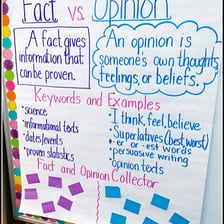 Fact vs. Opinion
A fact gives
information that
can be proven.
An opinion is
someone's own thoughts,
feelings, or beliefs.
Keywords and Examples
•science
•informational texts
•dates/events
•proven statistics
•I think, feel, believe
•Superlatives (best, worst)
•-er or -est words
•persuasive writing
•opinion texts
Fact and Opinion
Collector